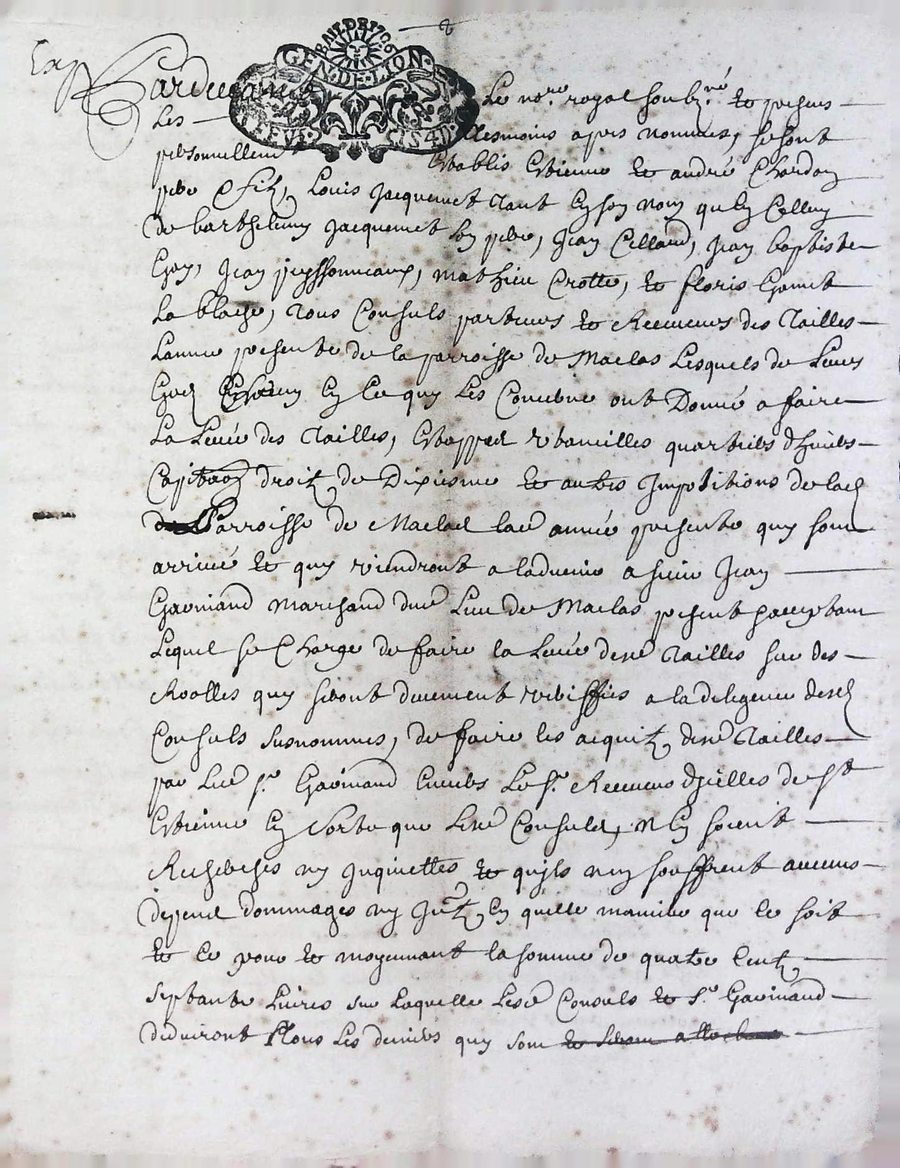 BAIL DE 1706
GEN · DE · LION
Exp
Pardevant Le no.re royal soubz.né et presens
Les tesmoins apres nommes, se sont
personnellem establis Estienne et andré Chardon
pere & filz, Louis Jacquemet tant en son nom qu'en Celluy
de barthelemy Jacquemet son pere, Jean Celland, Jean baptiste
Gay, Jean peyssonneaux, mathieu Crotte, et floris Gamet
La blache, tous Consuls et Receveurs des Tailles
Lannee presente de la parroisse de Maclas Lesquels de Leurs
gred en ce quy Les Concerne ont Donné a faire
La Levée des Tailles, ustancilles quartiers d'hivers
droitz de Dixiesme et autres Impositions de lad
Parroisse de Maclas lad année presente quy sont
arrivé et quy viendront a ladvenir a sieur Jean
Gavinand Marchand dud Lieu de Maclas present
Lequel se Charge de faire la Levée desd Tailles sur des
Roolles quy seront duement verifies a la deligence desd
Consuls susnommes, de faire les acquitz desd Tailles
par Led s.r Gavinand envers Le s.r Receveur d'icelles de S.t
Estienne en sorte que Lesd Consuls, n'en soient
Recherches ny Inquiettes et quils n'en souffrent aucuns
depens dommages ny en quelle maniere que ce soit
et ce pour et moyennant la somme de quatre Centz
septante Livres sur Laquelle Lesd Consuls et s.r Gavinand
deduiront tous Les deniers quy sont